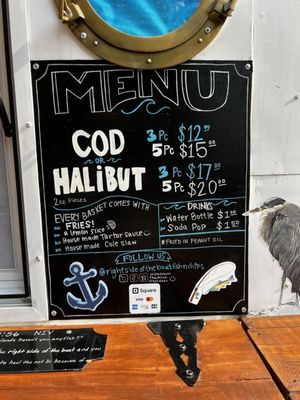 MENU
COD 3 Pc $12.00
OR 5 Pc $15.00
HALIBUT 3 Pc $17.00
2oz Pieces 5 Pc $20.00
EVERY BASKET COMES WITH
FRIES!
a lemon slice
House made Tartar Sauce
House made Cole slaw
DRINKS
Water Bottle $1.00
Soda Pop $1.50
*FRIED IN PEANUT OIL
FOLLOW US
@rightsideoftheboatfishnchips
Square
VISA
:56 NIV
haven't you any fish?"
right side of the boat and you
to haul the net in because of